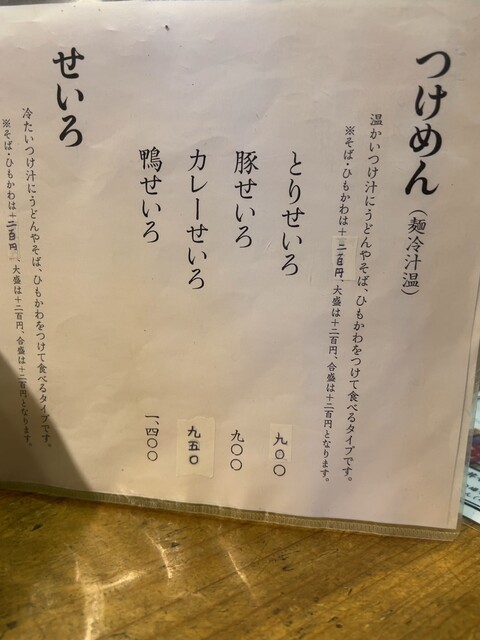 つけめん（麺冷汁温）
温かいつけ汁にうどんやそば、ひもかわをつけて食べるタイプです。
※そば・ひもかわは＋二百円、大盛は＋二百円、合盛は＋二百円となります。
とりせいろ 九〇〇
豚せいろ 九〇〇
カレーせいろ 九五〇
鴨せいろ 一、四〇〇
せいろ
冷たいつけ汁にうどんやそば、ひもかわをつけて食べるタイプです。
※そば・ひもかわは＋二百円、大盛は＋二百円、合盛は＋二百円となります。